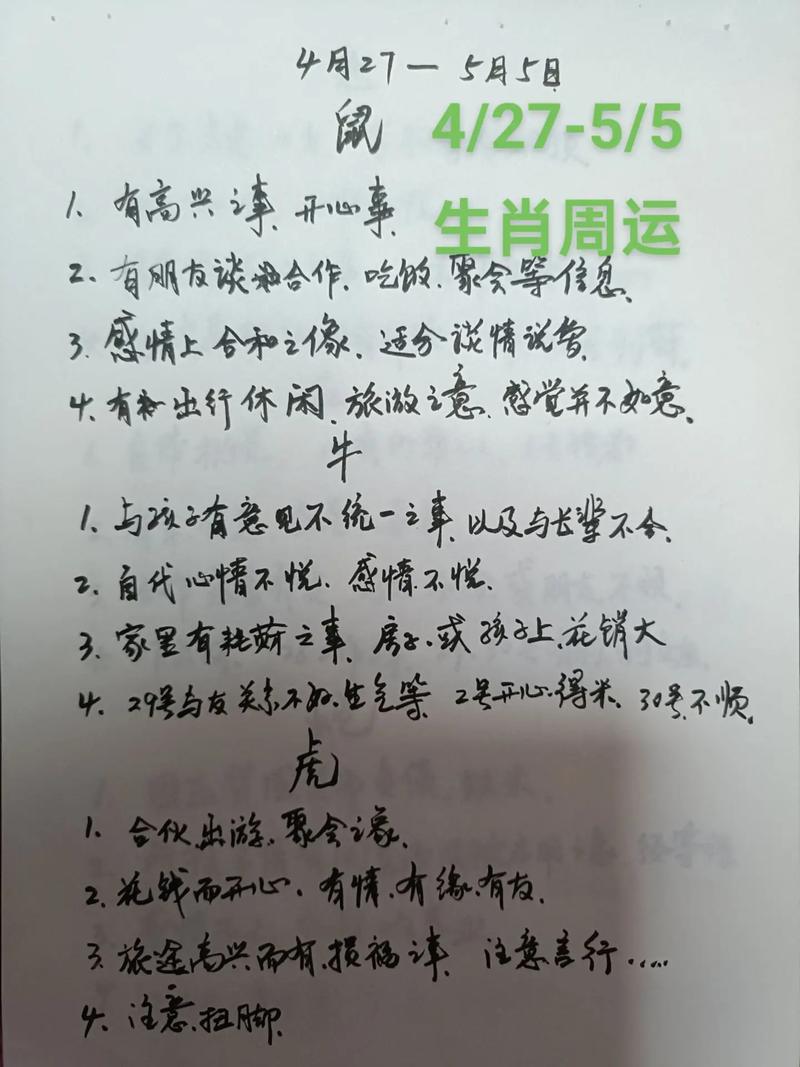 4月27—5月5日
鼠
4/27-5/5
生肖周运
1. 有高兴之事、开心事.
2. 有朋友谈和合作、吃饭、聚会等信息、
3. 感情上合和之像、适合谈情说爱.
4. 有 出行休闲、旅游之意、感觉并不如意、
牛
1. 与孩子有意见不统一之事、以及与长辈不合.
2. 自代心情不悦、感情不悦.
3. 家里有耗财之事、房子、或孩子上、花销大
4. 29号与友关系不好、生气等 2号开心、得米、30号、不顺、
虎
1. 合伙、出游、聚会之象、
2. 花钱而开心、有情、有缘、有友.
3. 旅途高兴而有、损福之事 注意言行.....
4. 注意、扭脚.